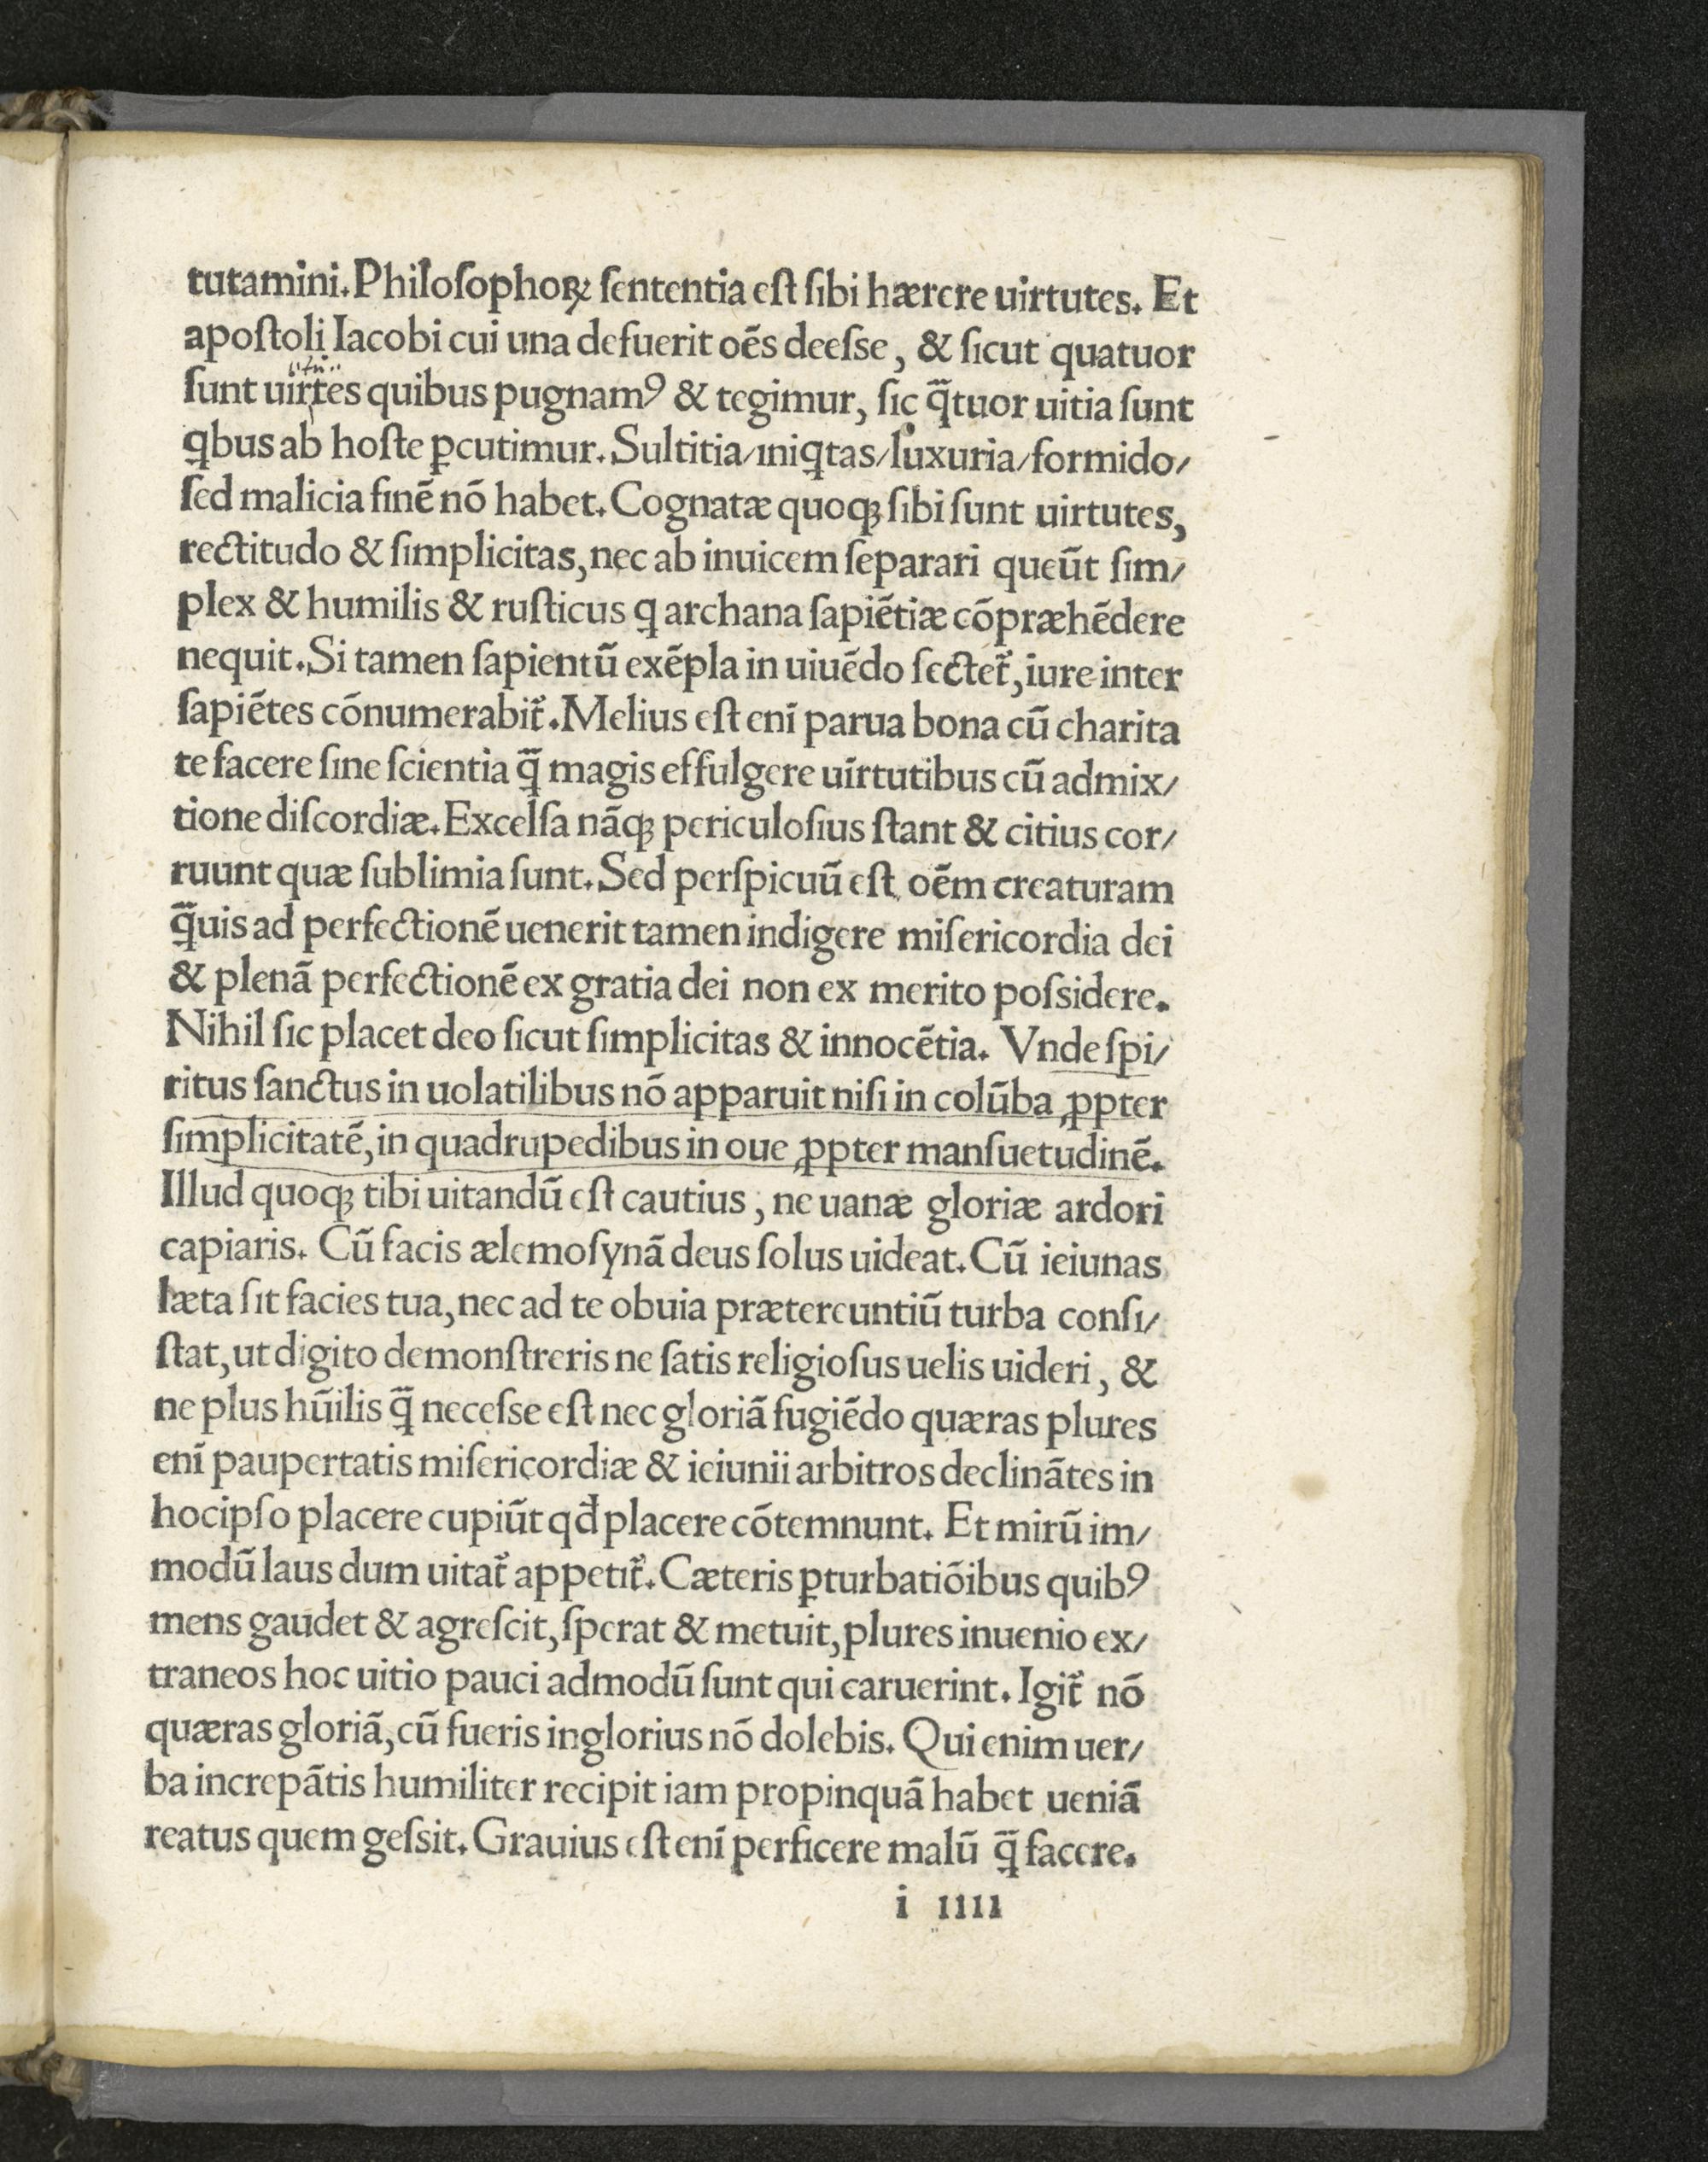 tutamini. Philoſophoꝝ ſententia eſt ſibi hærere uirtutes. Et
apoſtoli Iacobi cui una defuerit oēs deeſse, & ſicut quatuor
ſunt uirtes quibus pugnamꝰ & tegimur, ſic q̄tuor uitia ſunt
qbus ab hoſte ꝑcutimur. Sultitia/iniqtas/luxuria/formido/
ſed malicia finē nō habet. Cognatæ quoqꝫ ſibi ſunt uirtutes,
rectitudo & ſimplicitas, nec ab inuicem ſeparari queūt ſim/
plex & humilis & ruſticus q archana ſapiētiæ cōpræhēdere
nequit. Si tamen ſapientū exēpla in uiuēdo ſectet᷑, iure inter
ſapiētes cōnumerabit᷑. Melius eſt enī parua bona cū charita
te facere ſine ſcientia q̄ magis effulgere uirtutibus cū admix/
tione diſcordiæ. Excelſa nāqꝫ periculoſius ſtant & citius cor/
ruunt quæ ſublimia ſunt. Sed perſpicuū eſt oēm creaturam
q̄uis ad perfectionē uenerit tamen indigere miſericordia dei
& plenā perfectionē ex gratia dei non ex merito poſsidere.
Nihil ſic placet deo ſicut ſimplicitas & innocētia. Vnde ſpi/
ritus ſanctus in uolatilibus nō apparuit niſi in colūba ꝓpter
ſimplicitatē, in quadrupedibus in oue ꝓpter manſuetudinē.
Illud quoqꝫ tibi uitandū eſt cautius, ne uanæ gloriæ ardori
capiaris. Cū facis ælemoſynā deus ſolus uideat. Cū ieiunas
læta ſit facies tua, nec ad te obuia prætereuntiū turba conſi/
ſtat, ut digito demonſtreris ne ſatis religioſus uelis uideri, &
ne plus hūilis q̄ neceſse eſt nec gloriā fugiēdo quæras plures
enī paupertatis miſericordiæ & ieiunii arbitros declinātes in
hocipſo placere cupiūt qđ placere cōtemnunt. Et mirū im/
modū laus dum uitat᷑ appetit᷑. Cæteris ꝑturbatiōibus quibꝰ
mens gaudet & agreſcit, ſperat & metuit, plures inuenio ex/
traneos hoc uitio pauci admodū ſunt qui caruerint. Igit᷑ nō
quæras gloriā, cū fueris inglorius nō dolebis. Qui enim uer/
ba increpātis humiliter recipit iam propinquā habet ueniā
reatus quem geſsit. Grauius eſt enī perficere malū q̄ facere.
i iiii